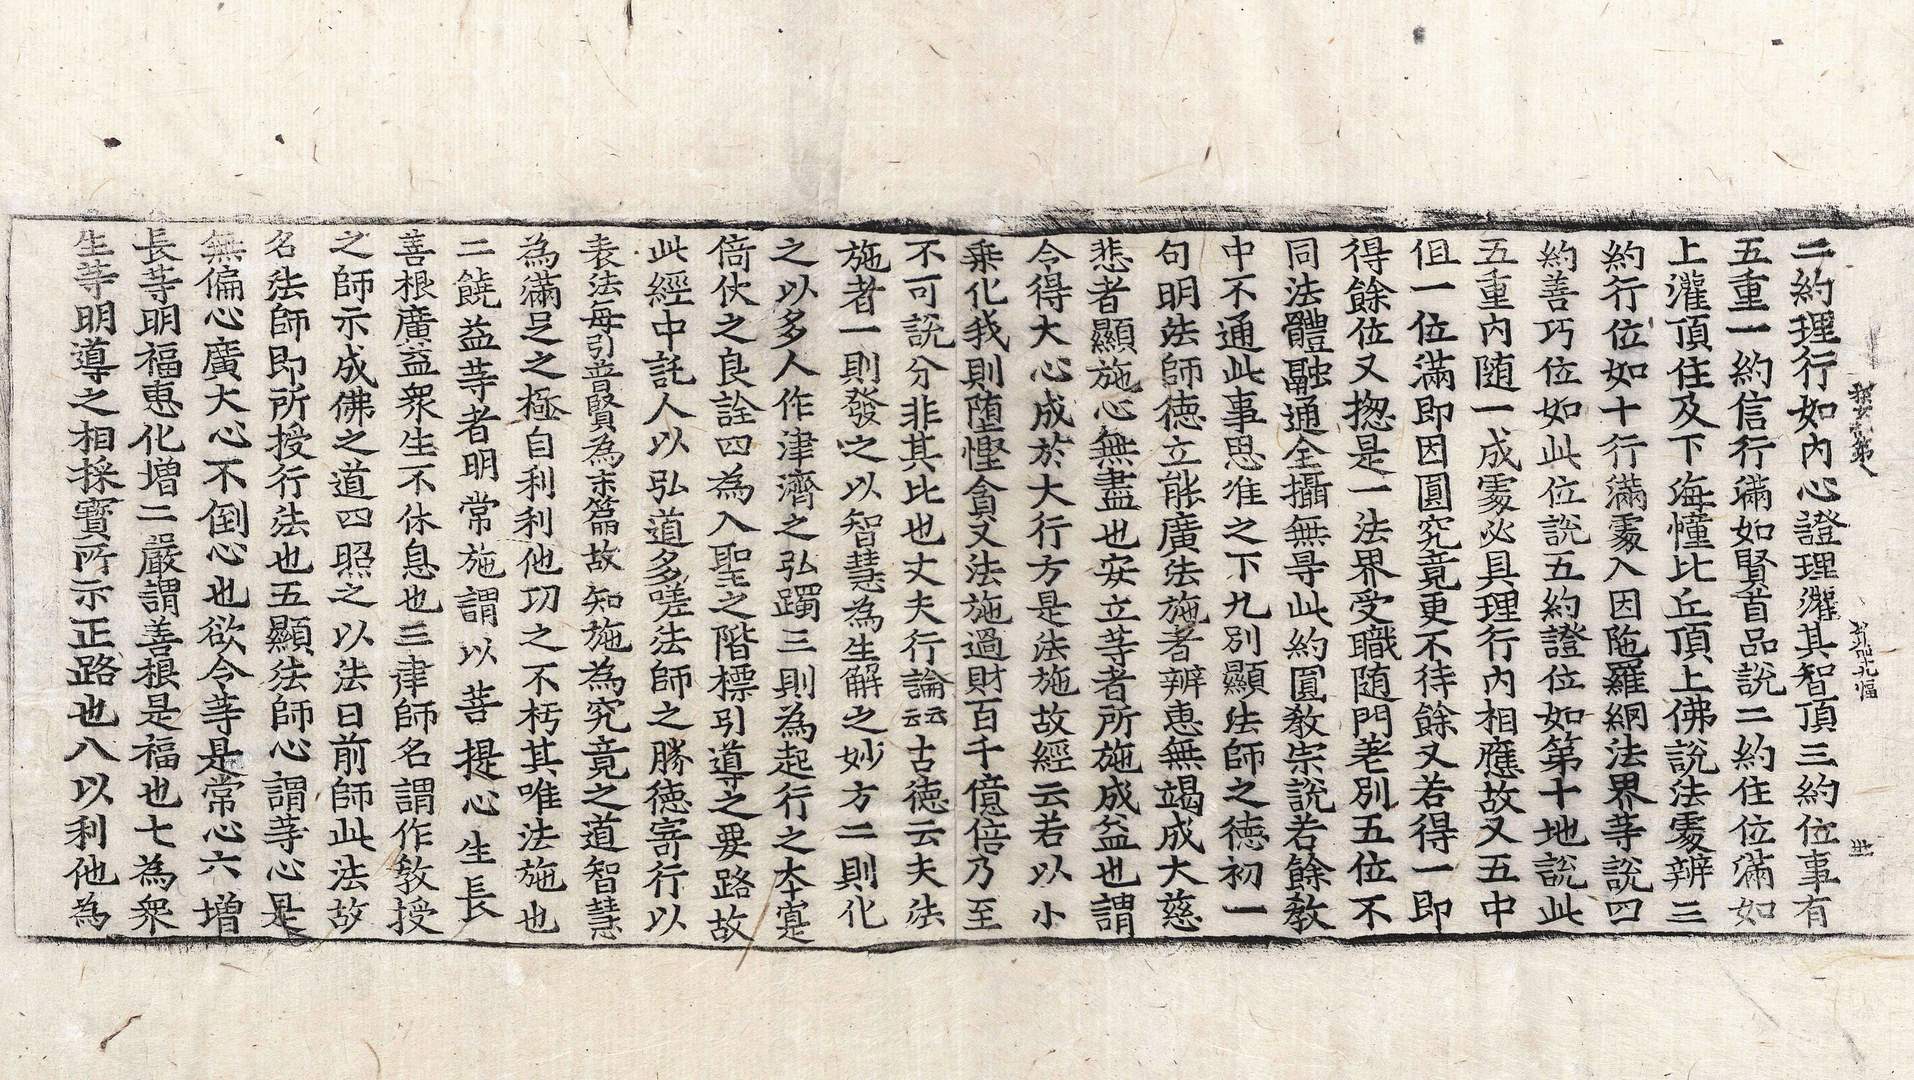 二約理行如內心證理灌其智頂三約位事有
五重一約信行滿如賢首品說二約住位滿如
上灌頂住及下海幢比丘頂上佛說法䖏辨三
約行位如十行滿䖏入因陁羅網法界䓁說四
約善巧位如此位說五約證位如第十地說此
五重內随一成䖏必具理行內相應故又五中
但一位滿即因圓究竟更不待餘又若得一即
得餘位又揔是一法界受職随門差別五位不
同法體融通全攝無㝵此約圓教宗說若餘教
中不通此事思准之下九別顯法師之徳初一
句明法師徳立能廣法施者辨惠無竭成大慈
悲者顯施心無盡也安立䓁者所施成益也謂
令得大心成於大行方是法施故經云若以小
乗化我則墮慳貪又法施過財百千億倍乃至
不可說分非其比也丈夫行論云云古徳云夫法
施者一則發之以智慧為生解之妙方二則化
之以多人作津濟之弘躅三則為起行之本寔
倚伏之良詮四為入聖之階標引導之要路故
此經中託人以弘道多嗟法師之勝徳寄行以
表法每引普賢為末篇故知施為究竟之道智慧
為滿足之極自利利他㓛之不朽其唯法施也
二饒益䓁者明常施謂以菩提心生長
善根廣益衆生不休息也三律師名謂作教授
之師示成佛之道四照之以法曰前師此法故
名法師即所授行法也五顯法師心謂䓁心是
無偏心廣大心不倒心也欲令䓁是常心六增
長䓁明福惠化增二嚴謂善根是福也七為衆
生䓁明導之相採寶所示正路也八以利他為